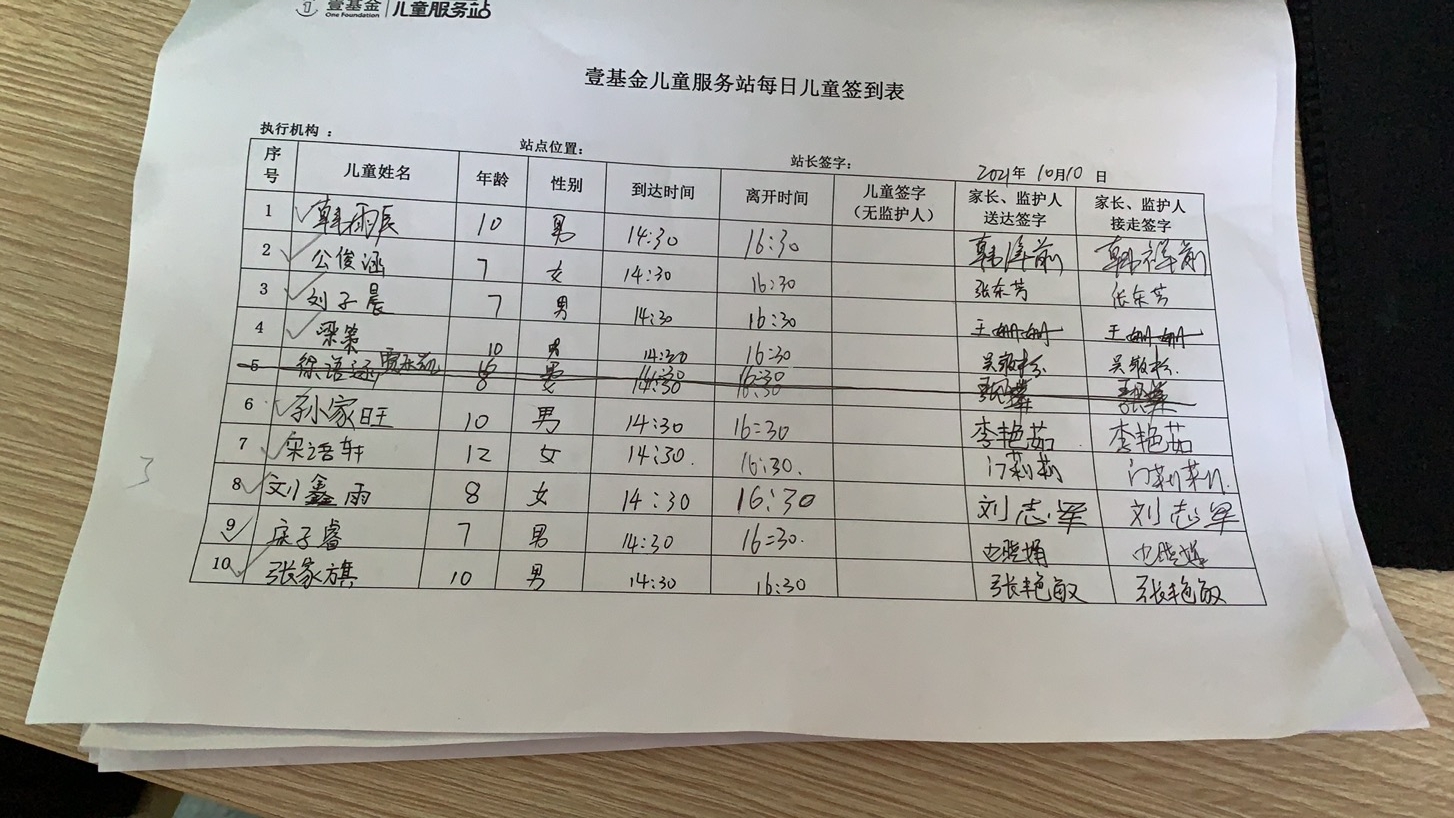 壹基金 One Foundation 儿童服务站
壹基金儿童服务站每日儿童签到表
执行机构： 站点位置： 站长签字： 2021年 10月10日
序号 儿童姓名 年龄 性别 到达时间 离开时间 儿童签字（无监护人） 家长、监护人送达签字 家长、监护人接走签字
1 韩雨辰 10 男 14:30 16:30
2 公俊涵 7 女 14:30 16:30 张东芳 张东芳
3 刘子晨 7 男 14:30 16:30 王姗姗 王姗姗
4 梁策 10 男 14:30 16:30 吴敏杉 吴敏杉.
5 徐语涵 8 女 14:30 16:30
6 孙家旺 10 男 14:30 16=30 李艳茹 李艳茹
7 宋语轩 12 女 14:30. 16:30. 门莉莉 门莉莉.
8 刘鑫雨 8 女 14:30 16:30 刘志军 刘志军
9 子睿 7 男 14:30 16=30.
10 张家旗 10 男 14:30 16:30 张艳敏 张艳敏
3